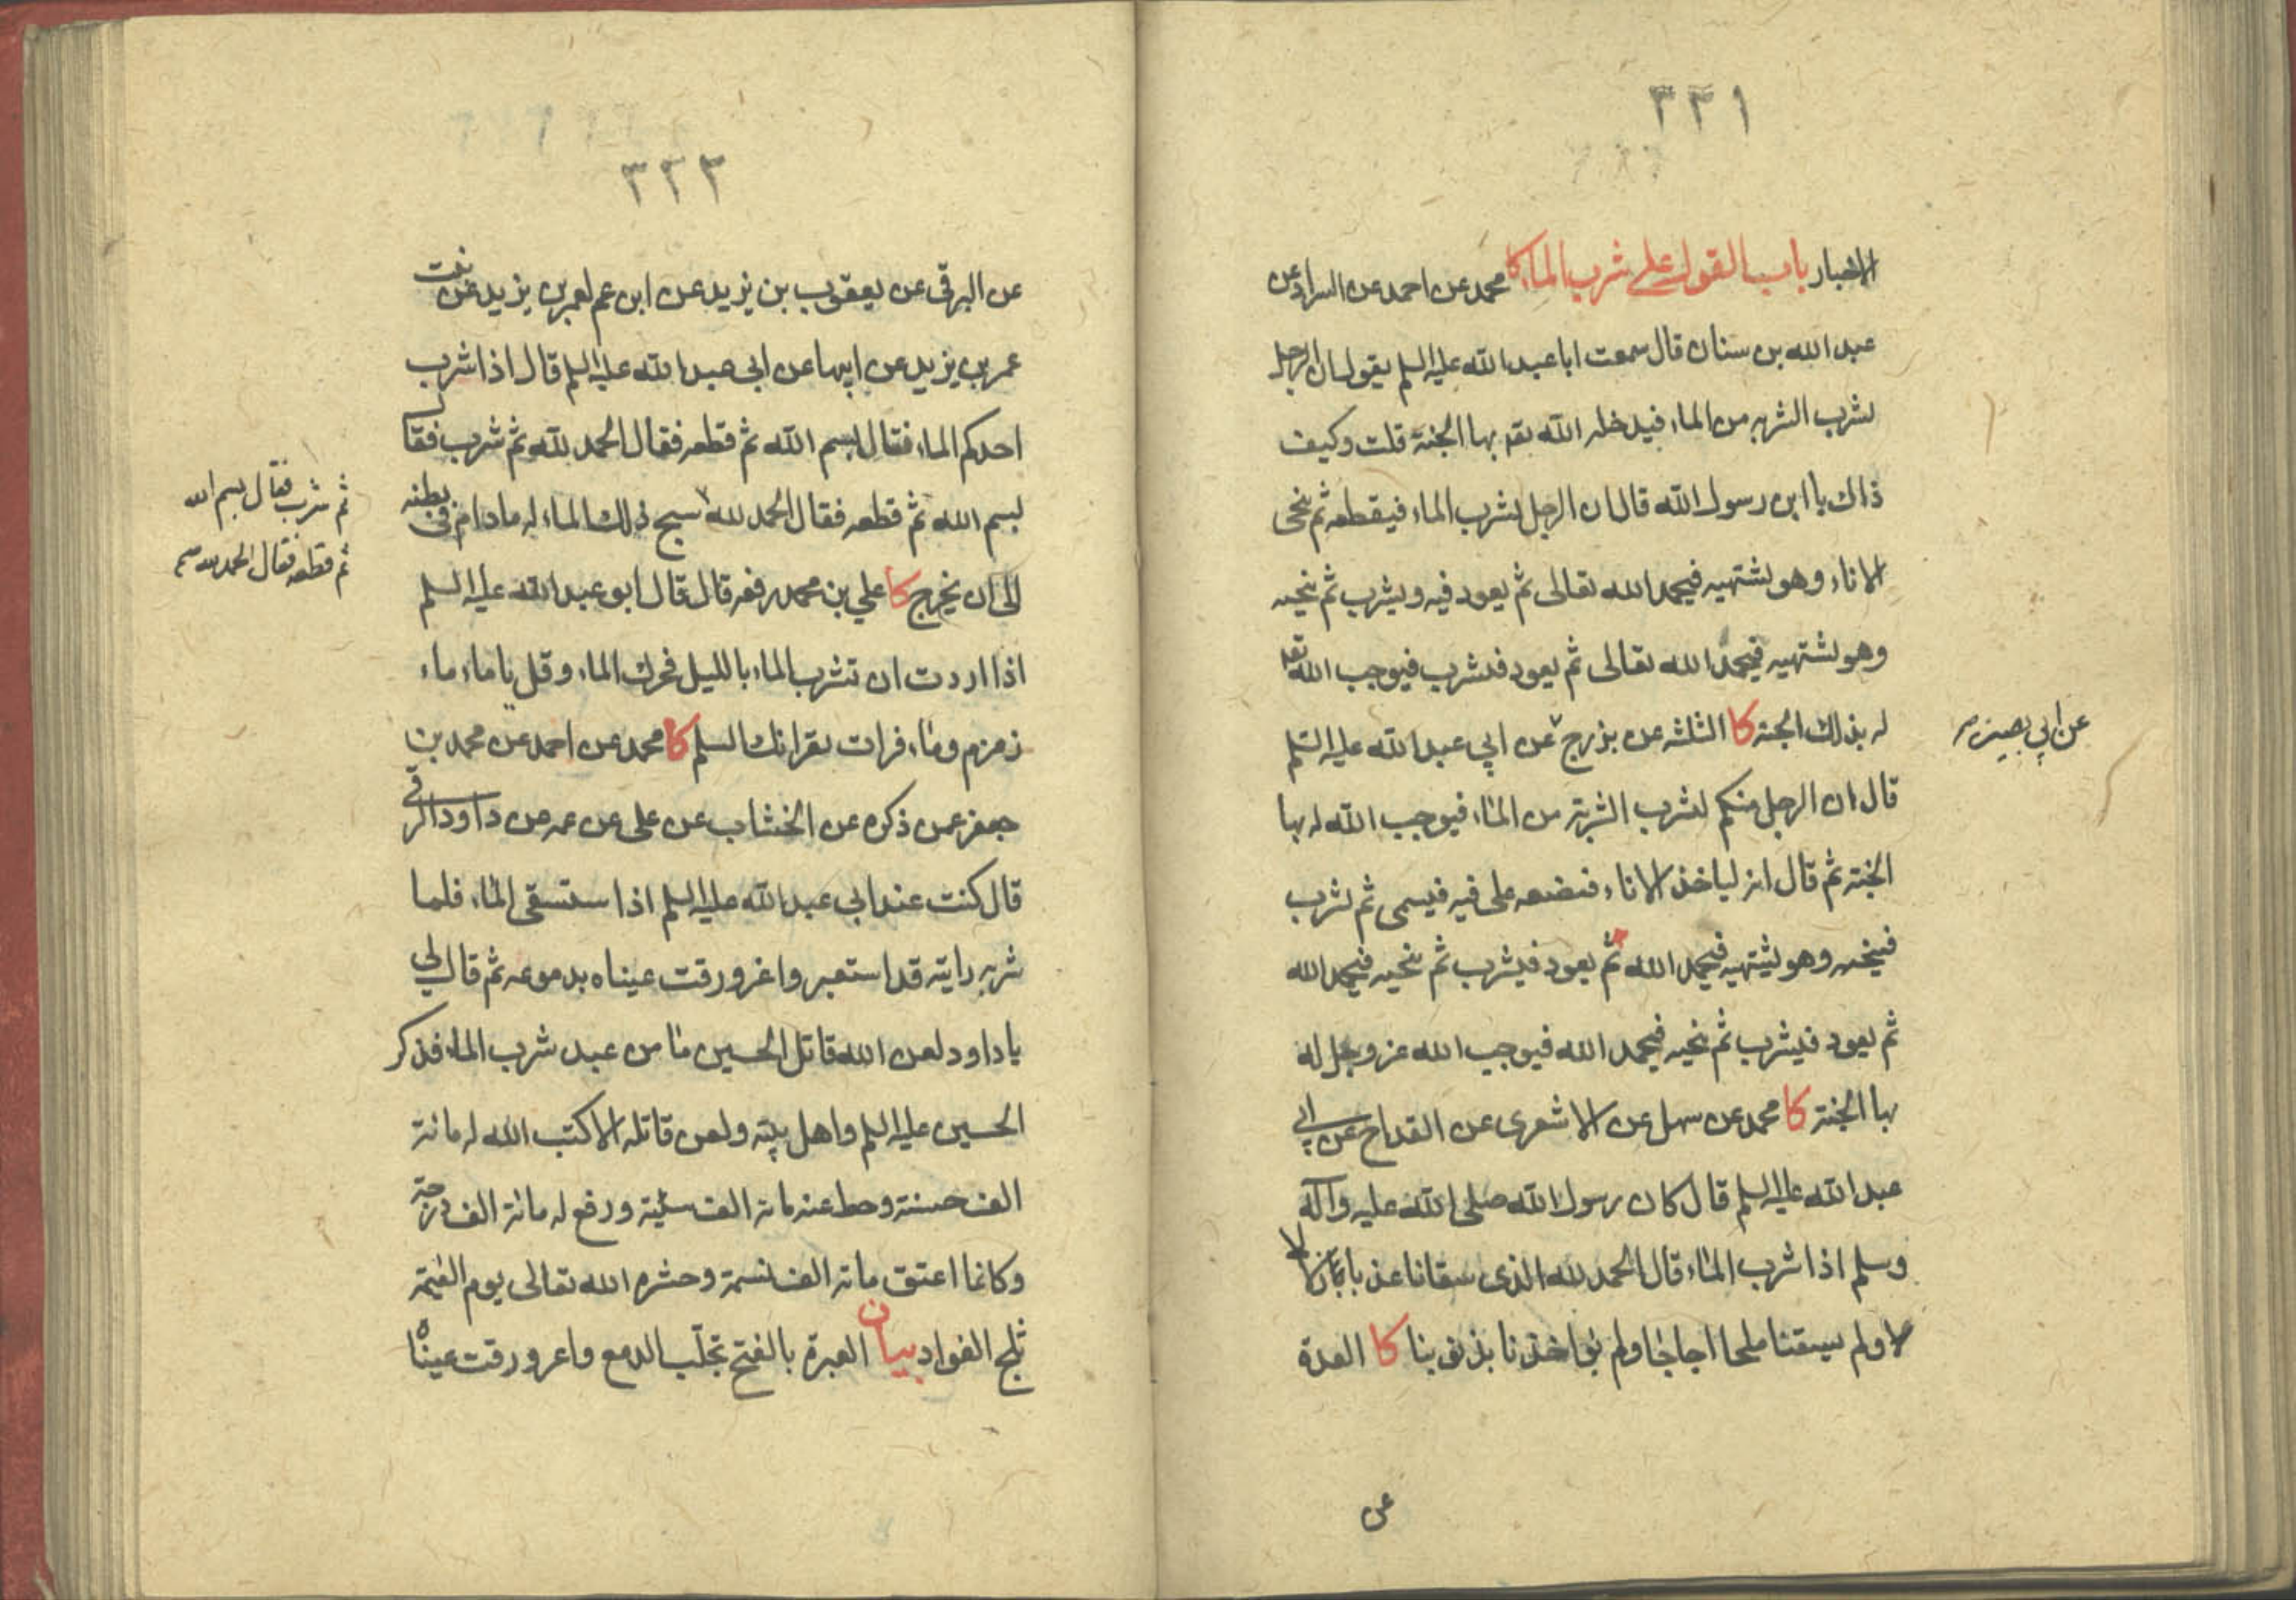 ٣٣١
الاخبار باب القول على شرب الماء كا محمد عن احمد عن السراد عن
عبد الله بن سنان قال سمعت ابا عبد الله عليه السلم يقول ان الرجل
لشرب الشربه من الماء فيدخله الله تعه بها الجنة قلت وكيف
ذاك يا ابن رسول الله قال ان الرجل لشرب الماء فيقطعه ثم ينحى
الاناء وهو يشتهيه فيحمد الله تعالى ثم يعود فيه ويشرب ثم ينحيه
وهو يشتهيه فيحمد الله تعالى ثم يعود فيشرب فيوجب الله تعه
له بذلك الجنه كا الثلثه عن بزرج عن ابي عبد الله عليه السلم
عن ابي بصير
قال ان الرجل منكم لشرب الشربة من الماء فيوجب الله له بها
الجنة ثم قال انه لياخذ الاناء فيضعه على فيه فيسمى ثم يشرب
فينحيه وهو يشتهيه فيحمد الله ثم يعود فيشرب ثم ينحيه فيحمد الله
ثم يعود فيشرب ثم ينحيه فيحمد الله فيوجب الله عز وجل له
بها الجنة كا محمد عن سهل عن الاشعرى عن القداح عن ابي
عبد الله عليه السلم قال كان رسول الله صلى الله عليه وآله
وسلم اذا شرب الماء قال الحمد لله الذى سقانا عذبا زلالا
ولم يسقنا ملحا اجاجا ولم يؤاخذنا بذنوبنا كا العدة
عن
٣٢٢
عن البرقى عن يعقوب بن يزيد عن ابن عم لعمر بن يزيد عن بنت
عمر بن يزيد عن ابيها عن ابى عبد الله عليه السلم قال اذا شرب
احدكم الماء فقال بسم الله ثم قطعه فقال الحمد لله ثم شرب فقال
بسم الله ثم قطعه فقال الحمد لله سبح ذلك الماء له مادام فى بطنه
ثم شرب فقال بسم الله
ثم قطعه فقال الحمد لله
الى ان يخرج كا علي بن محمد رفعه قال قال ابو عبد الله عليه السلم
اذا اردت ان تشرب الماء بالليل فحرك الماء وقل يا ماء ماء
زمزم وماء فرات يقرانك السلم كا محمد عن احمد عن محمد بن
جعفر عمن ذكره عن الخشاب عن على عن عمه عن داود الرقى
قال كنت عند ابي عبد الله عليه السلم اذا ستسقى الماء فلما
شربه رايته قد استعبر واغرورقت عيناه بدموعه ثم قال لي
يا داود لعن الله قاتل الحسين ما من عبد شرب الماء فذكر
الحسين عليه السلم واهل بيته ولعن قاتله الا كتب الله له مائة
الف حسنة وحط عنه مائة الف سيئة ورفع له مائة الف درجة
وكانما اعتق مائة الف نسمة وحشره الله تعالى يوم القيمة
ثلج الفواد بيان العبرة بالفتح تحلب الدمع واغرورقت عيناه